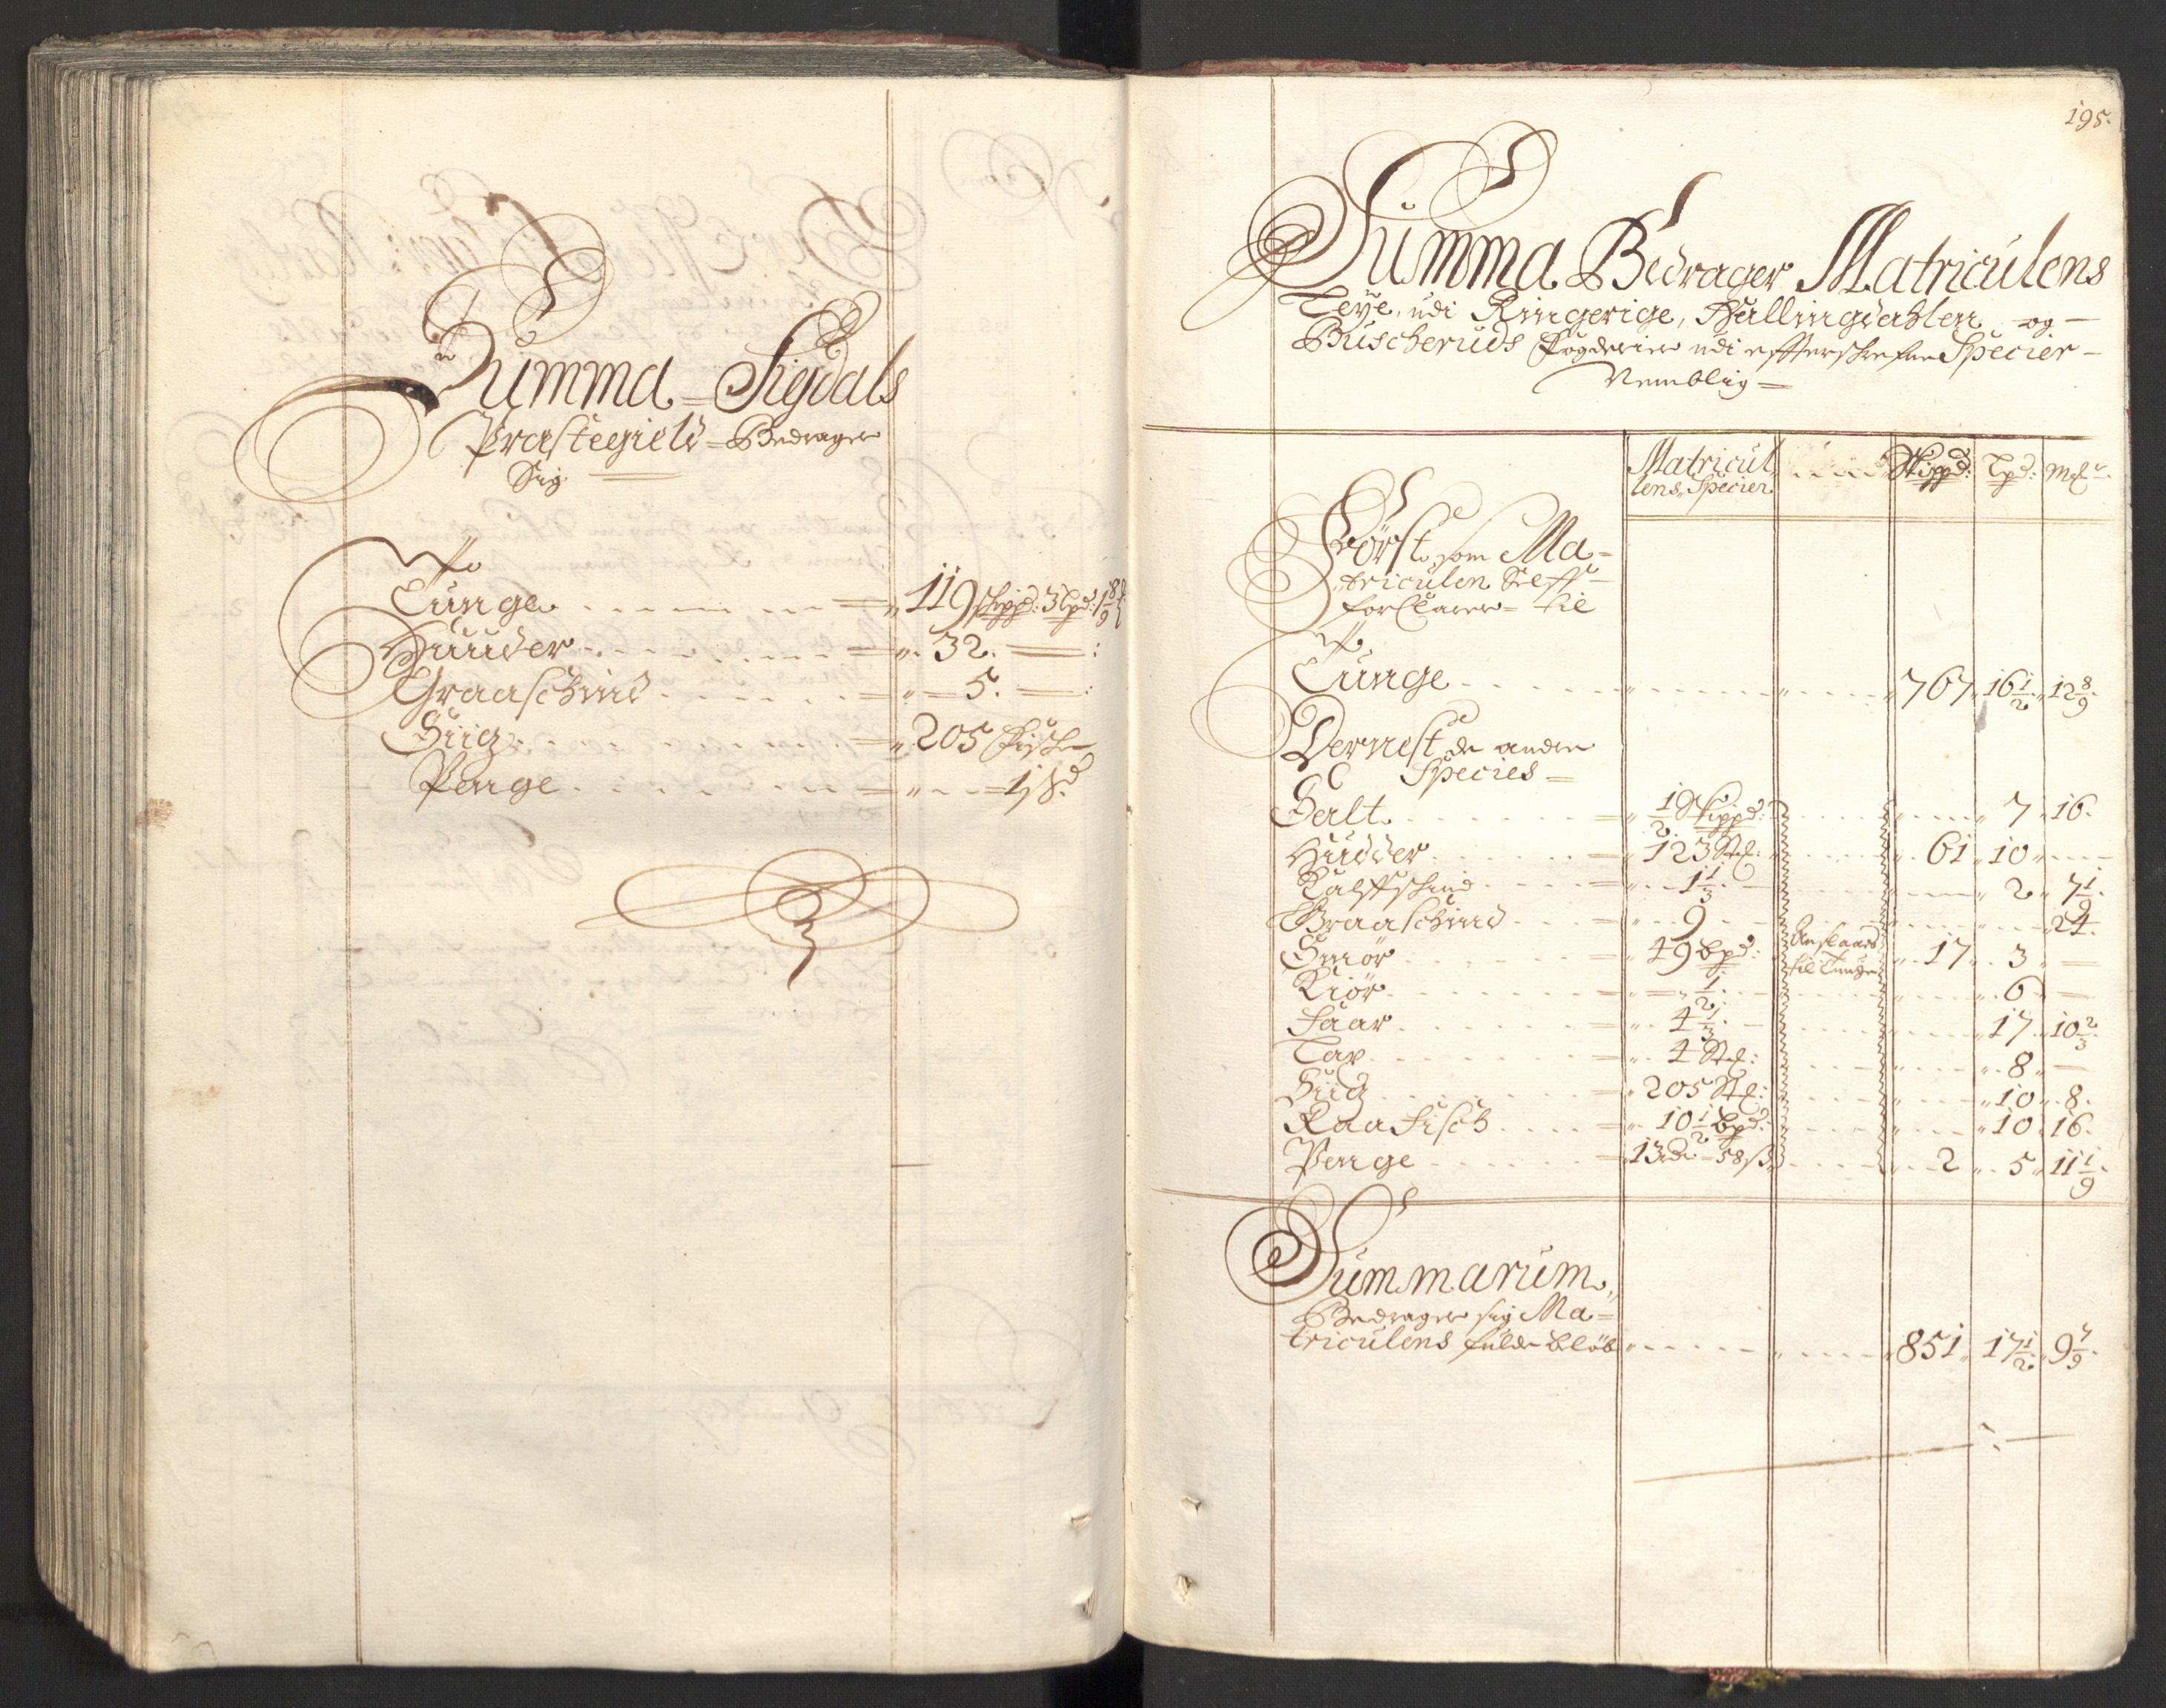 Summa Sigdals
Præstegield Bedrager
Sig
Tunge 119 skippd: 3 Lpd: 1 8/9
Huuder 32.
Graaschind 5.
Siig 205 fiske
Penge 1 ß.
195.
Summa Bedrager Matriculens
Leye, udi Ringerige, Hallingdahlen og
Buscheruds fogderier udi effterskrefne Specier
Nemblig
Matricul lens Specier Skippd: Lpd: Mrk:
Först som Ma=
triculen Self
forClarer til
Tunge 767 16 1/2 12 8/9.
Dernest de andre
Species
Salt 1/2 Skippd: 7 16.
Hudder 123 Stk: 61 10
Kalffskind 1 1/3 2 7 1/9.
Graaschind 9 24.
Smör 49 bpd: Anslaaed til Tunge 17 3
Kiör 1/2 6
Faar 4 1/3 17 10 2/3.
Lax 4 Stk: 8
Siig 205 Stk: 10 8.
Raa Fisch 10 1/2 bpd: 10 16.
Penge 13 dr 58 ß 2 5 11 1/9.
Summarum,
Bedrager sig Ma=
triculens fulde Beløb 851 17 1/2 9 7/9.